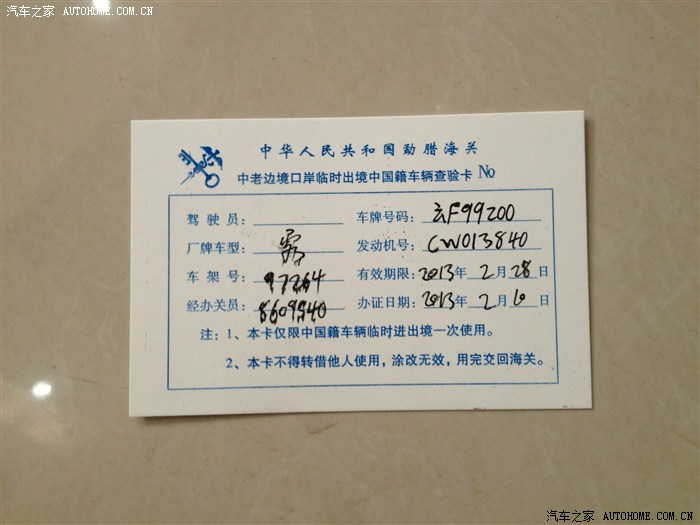 汽车之家 AUTOHOME.COM.CN
中华人民共和国勐腊海关
中老边境口岸临时出境中国籍车辆查验卡 No
驾驶员： 车牌号码：云F99200
厂牌车型： 发动机号：CW013840
车架号：97264 有效期限：2013年2月28日
经办关员：8609940 办证日期：2013年2月6日
注：1、本卡仅限中国籍车辆临时进出境一次使用。
2、本卡不得转借他人使用，涂改无效，用完交回海关。
汽车之家 AUTOHOME.COM.CN